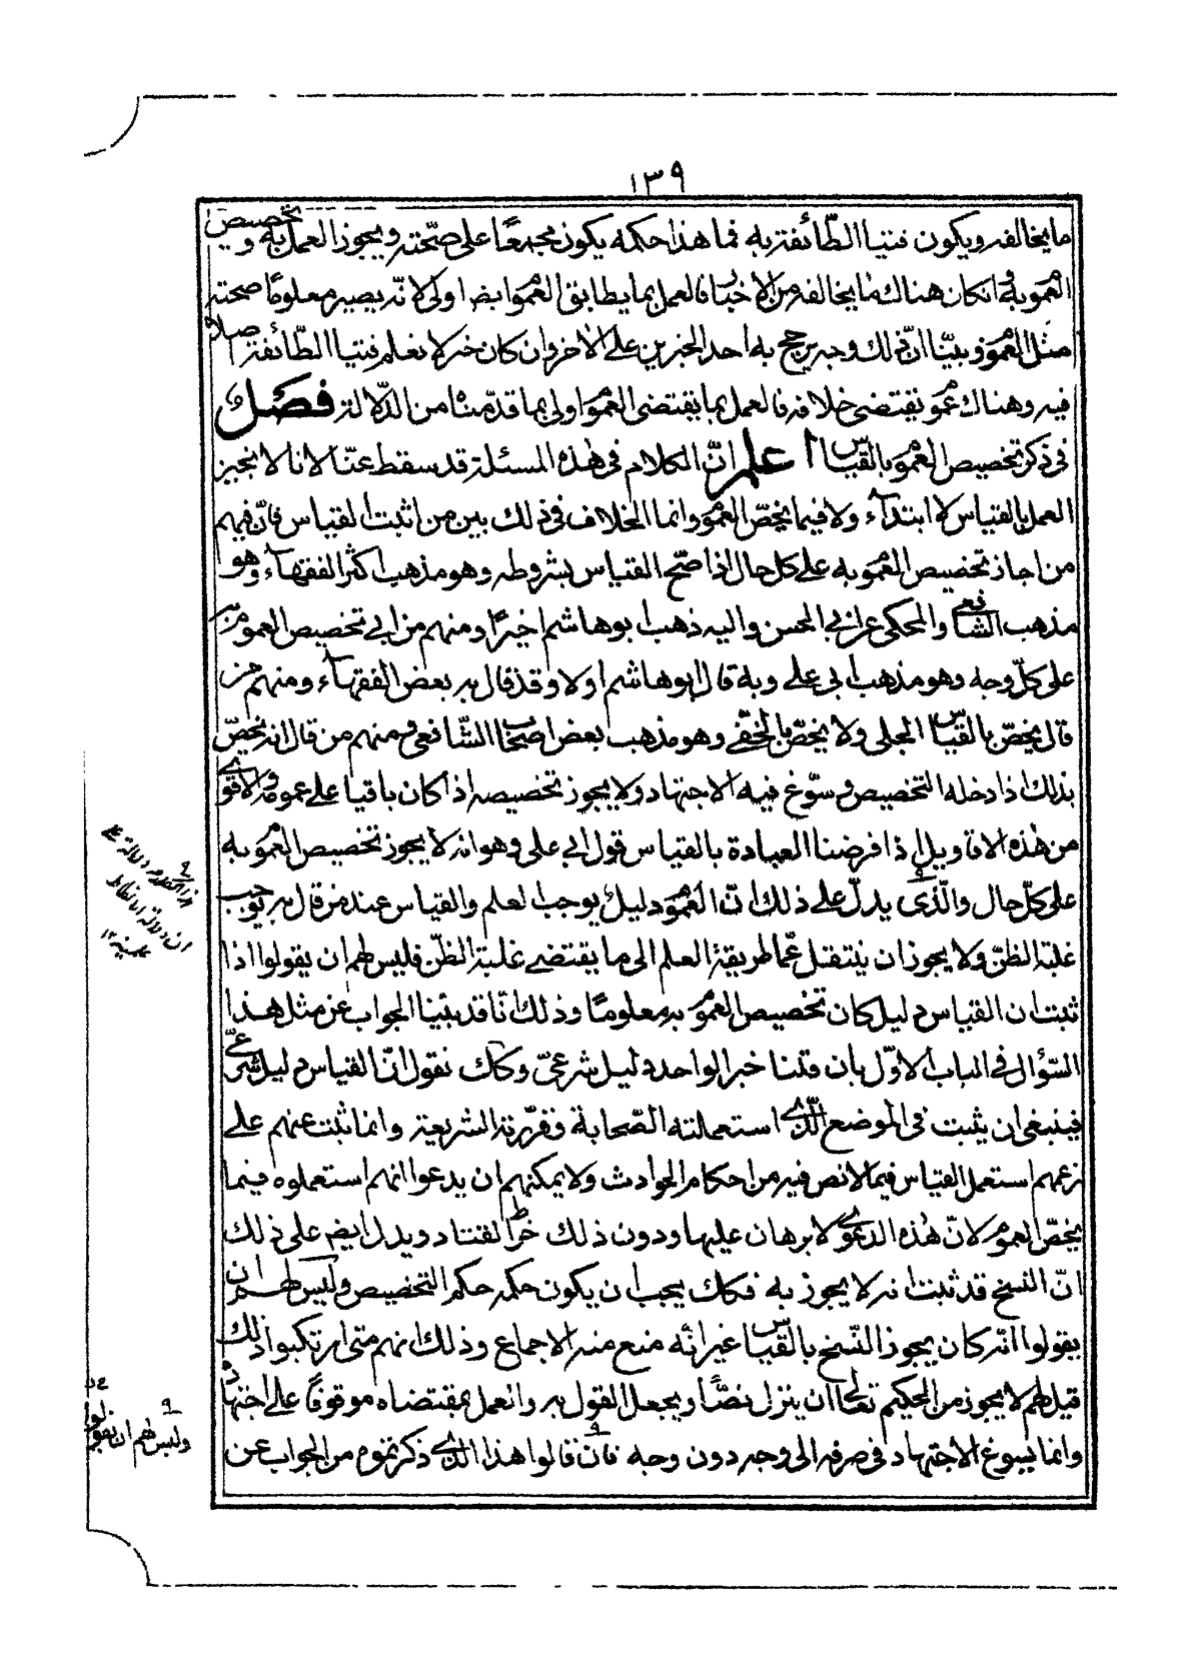 ١٣٩
ما يخالفه ويكون فتيا الطّائفة به فما هذا حكمه يكون مجمعًا على صحّته ويجوز العمل به وتخصيص
العموم به وان كان هناك ما يخالفه من الاخبار فالعمل بما يطابق العموم ايضا اولى لانّه يصير معلومًا صحته
مثل العموم وبيّنا ان ذلك وجه يرجح به احد الخبرين على الآخر وان كان خبر لا نعلم فتيا الطّائفة اصلا
فيه وهناك عموم يقتضى خلافه فالعمل بما يقتضى العموم اولى بما قدّمناه من الدّلالة فصل
فى ذكر تخصيص العموم بالقياس اعلم انّ الكلام فى هذه المسئلة قد سقط عنّا لانا لا نجيز
العمل بالقياس لا ابتداء ولا فيما يخصّ العموم وانما الخلاف فى ذلك بين من اثبت القياس فانّ فيهم
من اجاز تخصيص العموم به على كل حال اذا صحّ القياس بشروطه وهو مذهب اكثر الفقهاء وهو
مذهب الشّافعى والمحكى عن ابى الحسن واليه ذهب ابو هاشم اخيرًا ومنهم من ابى تخصيص العموم به
على كلّ وجه وهو مذهب ابى على وبه قال ابو هاشم اولا وقد قال به بعض الفقهاء ومنهم من
قال يخصّ بالقياس الجلى ولا يخصّ بالخفى وهو مذهب بعض اصحاب الشّافعى ومنهم من قال انه يخصّ
بذلك اذا دخله التخصيص وسوّغ فيه الاجتهاد ولا يجوز تخصيصه اذا كان باقيا على عمومه والاقوى
من هذه الاقاويل اذا فرضنا العبادة بالقياس قول ابى على وهو انه لا يجوز تخصيص العموم به
على كلّ حال والّذى يدلّ على ذلك انّ العموم دليل يوجب العلم والقياس عند من قال به يوجب
غلبة الظنّ ولا يجوز ان ينتقل عمّا طريقة العلم الى ما يقتضى غلبة الظنّ فليس لهم ان يقولوا اذا
ثبت ان القياس دليل كان تخصيص العموم به معلومًا وذلك انّا قد بيّنا الجواب عن مثل هذا
السّؤال فى الباب الاوّل بان قلنا خبر الواحد دليل شرعىّ وكك نقول انّ القياس دليل شرعىّ
فينبغى ان يثبت فى الموضع الّذى استعملته الصّحابة وقرّرته الشريعة وانما ثبت عنهم على
زعمهم استعمل القياس فيما لا نص فيه من احكام الحوادث ولا يمكنهم ان يدعوا انهم استعملوه فيما
يخصّ العموم لانّ هذه الدعوى لا برهان عليها ودون ذلك خرط القتاد ويدل ايضا على ذلك
انّ النسخ قد ثبت انه لا يجوز به فكك يجب ان يكون حكمه حكم التخصيص وليس لهم ان
يقولوا انّه كان يجوز النّسخ بالقياس غير انّه منع منه الاجماع وذلك انهم متى ارتكبوا ذلك
قيل لهم لا يجوز من الحكيم تعالى ان ينزل نصًّا ويجعل القول به والعمل بمقتضاه موقوفًا على اجتهاد
وانما يسوغ الاجتهاد فى صرفه الى وجه دون وجه فان قالوا هذا الذى ذكرتموه من الجواب عن
وليس لهم ان يقولوا